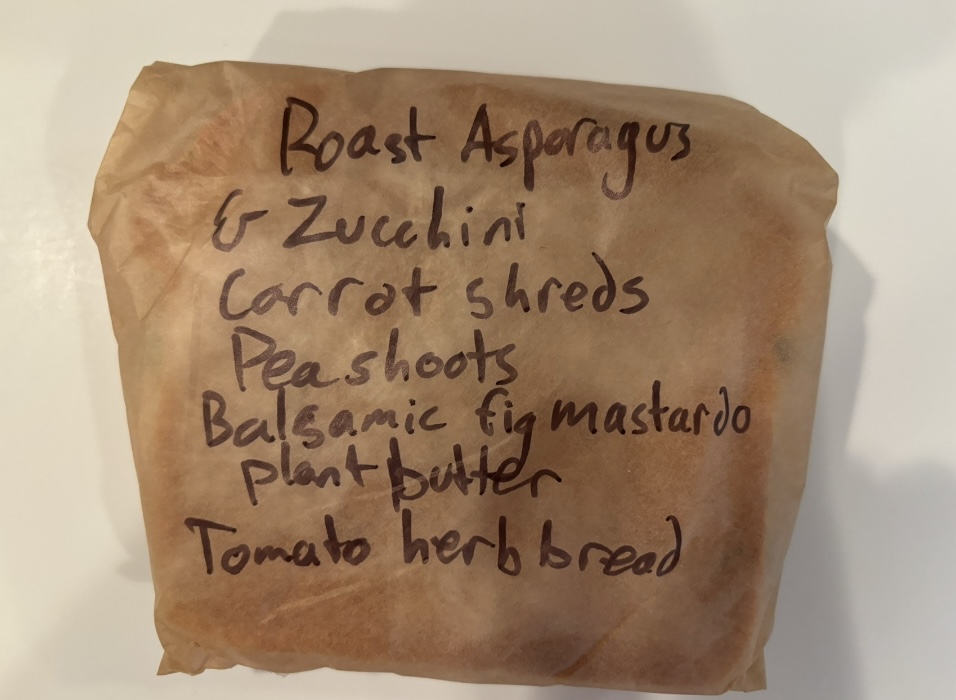 Roast Asparagus
& Zucchini
Carrot shreds
Pea shoots
Balsamic fig mastardo
plant butter
Tomato herb bread